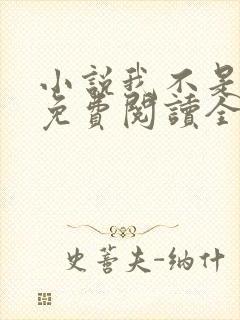 小說我不是
免費閱讀全
史蒂夫-納什